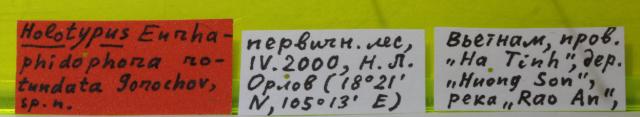 Holotypus Eurha-
phidophora ro-
tundata Gorochov,
sp. n.
первичн. лес,
IV. 2000, Н. Л.
Орлов (18°21'
N, 105°13' E)
Вьетнам, пров.
„Ha Tinh", дер.
„Huong Son",
река „Rao An",